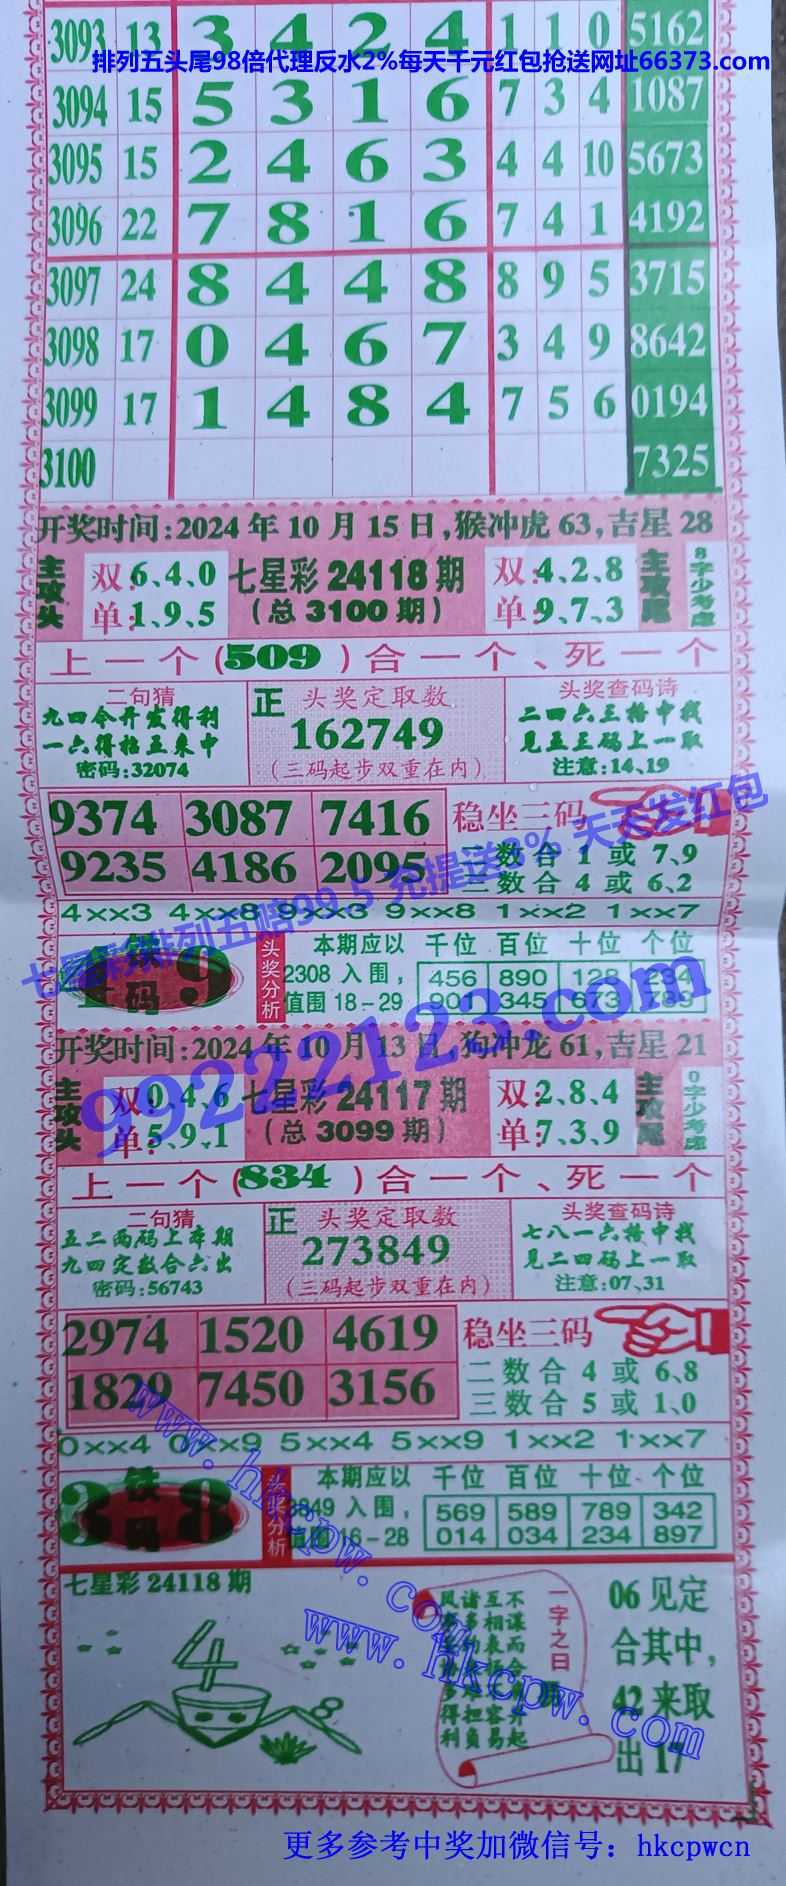 3093 13 3 4 2 4 1 1 0 5162
排列五头尾98倍代理反水2%每天千元红包抢送网址66373.com
3094 15 5 3 1 6 7 3 4 1087
3095 15 2 4 6 3 4 4 10 5673
3096 22 7 8 1 6 7 4 1 4192
3097 24 8 4 4 8 8 9 5 3715
3098 17 0 4 6 7 3 4 9 8642
3099 17 1 4 8 4 7 5 6 0194
3100 7325
开奖时间:2024年10月15日,猴冲虎63,吉星28
主攻头
双:6、4、0
单:1、9、5
七星彩24118期
(总3100期)
双:4、2、8
单:9、7、3
主攻尾
8字少考虑
上一个(509)合一个、死一个
二句猜
九四令开发得利
一六得拾五来中
密码:32074
正 头奖定取数
162749
(三码起步双重在内)
头奖查码诗
二四六三榜中找
见五三码上一取
注意:14、19
9374 3087 7416
9235 4186 2095
稳坐三码
二数合1或7、9
三数合4或6、2
七星彩排列五赔99.5 充提送3% 天天发红包
4××3 4××8 9××3 9××8 1××2 1××7
铁码 9
头奖分析
本期应以
2308入围,
值围18-29
千位 百位 十位 个位
456 890 128 234
901 345 673 789
99222123.com
开奖时间:2024年10月13日,狗冲龙61,吉星21
主攻头
双:0、4、6
单:5、9、1
七星彩24117期
(总3099期)
双:2、8、4
单:7、3、9
主攻尾
0字少考虑
上一个(834)合一个、死一个
二句猜
五二两码上本期
九四定数合六出
密码:56743
正 头奖定取数
273849
(三码起步双重在内)
头奖查码诗
七八一六榜中找
见二四码上一取
注意:07、31
2974 1520 4619
1829 7450 3156
稳坐三码
二数合4或6、8
三数合5或1、0
0××4 0××9 5××4 5××9 1××2 1××7
3 铁码 8
头奖分析
本期应以
3849入围,
值围16-28
千位 百位 十位 个位
569 589 789 342
014 034 234 897
www.hkcpw.com
七星彩24118期
4
8
一字之曰
不谋而合
互相表
诸多
得担容开
利负易起
www.hkcpw.com
06见定
合其中,
42来取
出17
更多参考中奖加微信号：hkcpwcn